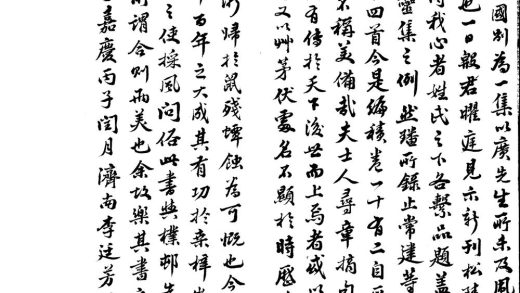 國別為一集以廣先生所未及風
也一日殷君曜庭見示新刊松
我心者姓氏之下各繫品題蓋
靈集之例然璠所錄止常建等
四首今是編積卷一十有二自
不稱美備哉夫士人尋章摘句
有傳於天下後世而上焉者或以
又以艸茅伏處名不顯於時歷
歸於鼠殘蟫蝕為可慨也今
百年之大成其有功於桑梓
之使採風問俗此書與樸邨先
所謂合則兩美也余故樂其書
嘉慶丙子閏月濟南李廷芳